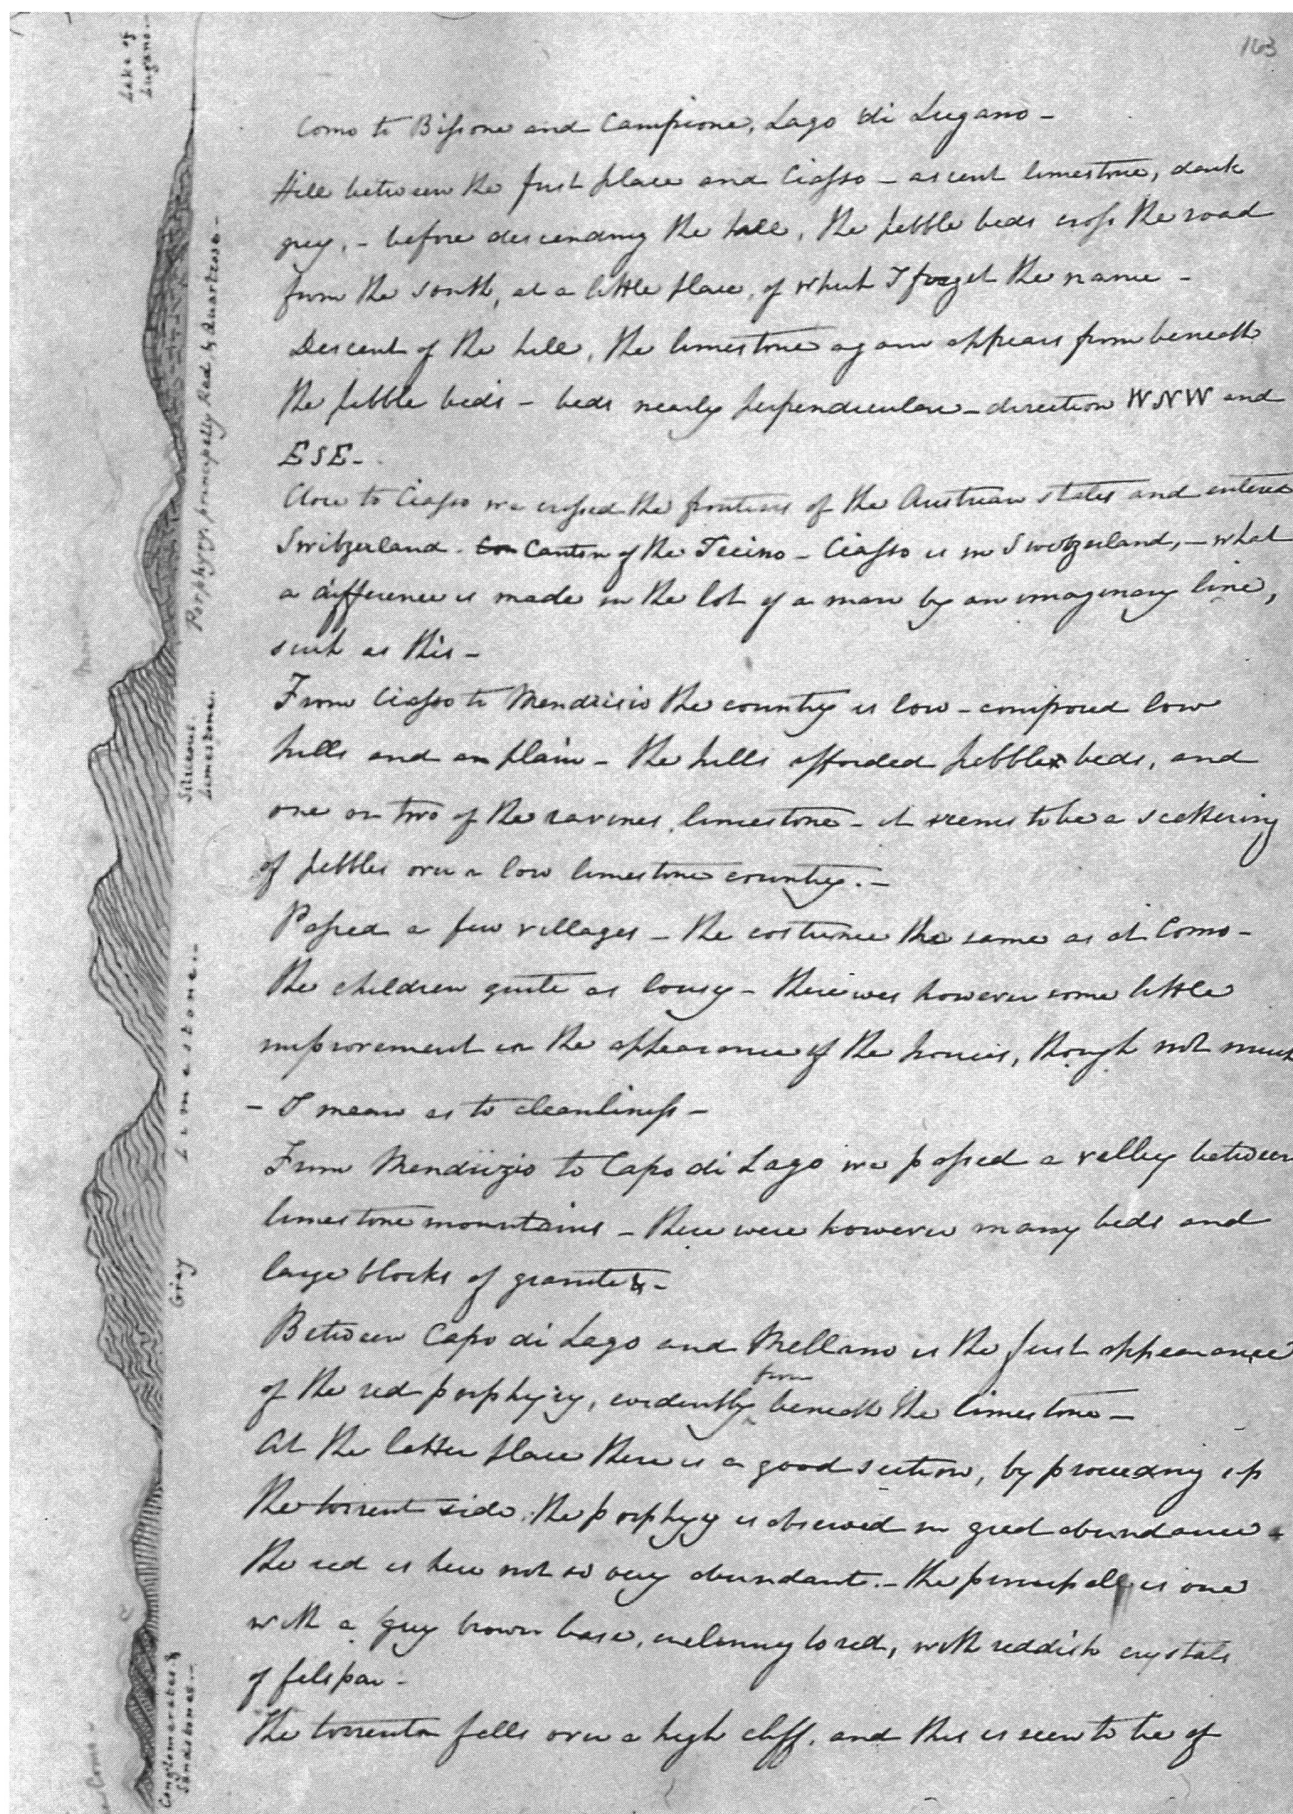 163
Como to Bissone and Campione, Lago di Lugano -
Hill between the first place and Ciasso - ascent limestone, dark
grey, - before descending the hill, the pebble beds cross the road
from the south, at a little place, of which I forget the name -
Descent of the hill, the limestone again appears from beneath
the pebble beds - beds nearly perpendicular - direction WNW and
ESE -
Close to Ciasso we crossed the frontiers of the Austrian states and entered
Switzerland. Canton of the Tecino - Ciasso is in Switzerland, - what
a difference is made in the lot of a man by an imaginary line,
such as this -
From Ciasso to Mendrisio the country is low - composed low
hills and a plain - the hills afforded pebble beds, and
one or two of the ravines, limestone - it seems to be a scattering
of pebbles over a low limestone country. -
Passed a few villages - the costume the same as at Como -
the children quite as lousy - there was however some little
improvement in the appearance of the houses, though not much
- I mean as to cleanliness -
From Mendrizio to Capo di Lago we passed a valley between
limestone mountains - there were however many beds and
large blocks of granite -
Between Capo di Lago and Mellano is the first appearance
of the red porphyry, evidently from beneath the limestone -
At the latter place there is a good section, by proceeding up
the torrent side. the porphyry is observed in great abundance
the red is here not so very abundant. - the principal is one
with a grey brown base, inclining to red, with reddish crystals
of felspar -
The torrent falls over a high cliff, and this is seen to be of
Lake of
Lugano.
Porphyry, principally Red, & Quartzose -
Siliceous
Limestone.
Gray Limestone -
Conglomerates &
Sandstones -
Como -